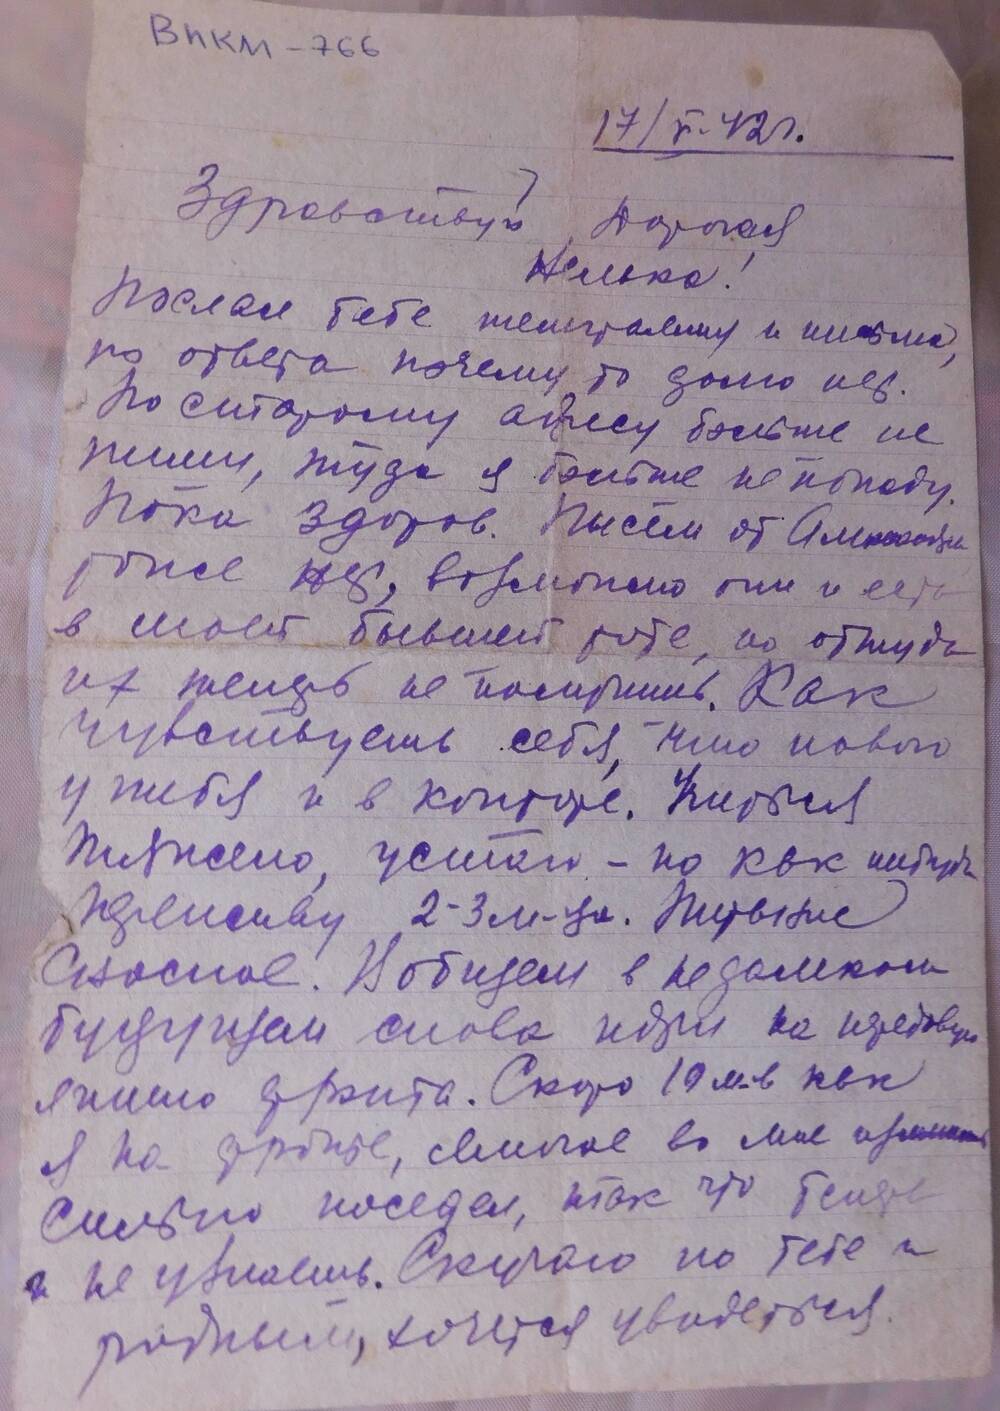 ВПКМ - 766
17/V-42г.
Здравствуй Дорогая
Нелька!
Послал тебе телеграмму и письма,
но ответа почему то долго нет.
По старому адресу больше не
пиши, туда я больше не попаду.
Пока здоров. Писем от
тоже нет, возможно они и есть
в моей бывшей роте, но оттуда
их теперь не получишь. Как
чувствуешь себя, что нового
у тебя и в конторе. Учиться
тяжело, устаю - но как нибудь
2-3 м-ца. Питание
сносное. В общем в недалеком
будущем снова идти на передовую
линию фронта. Скоро 10 м-в как
я на фронте, многое во мне
сильно поседел, так что
и не узнаешь. Скучаю по тебе и
родным, хочется увидеться.